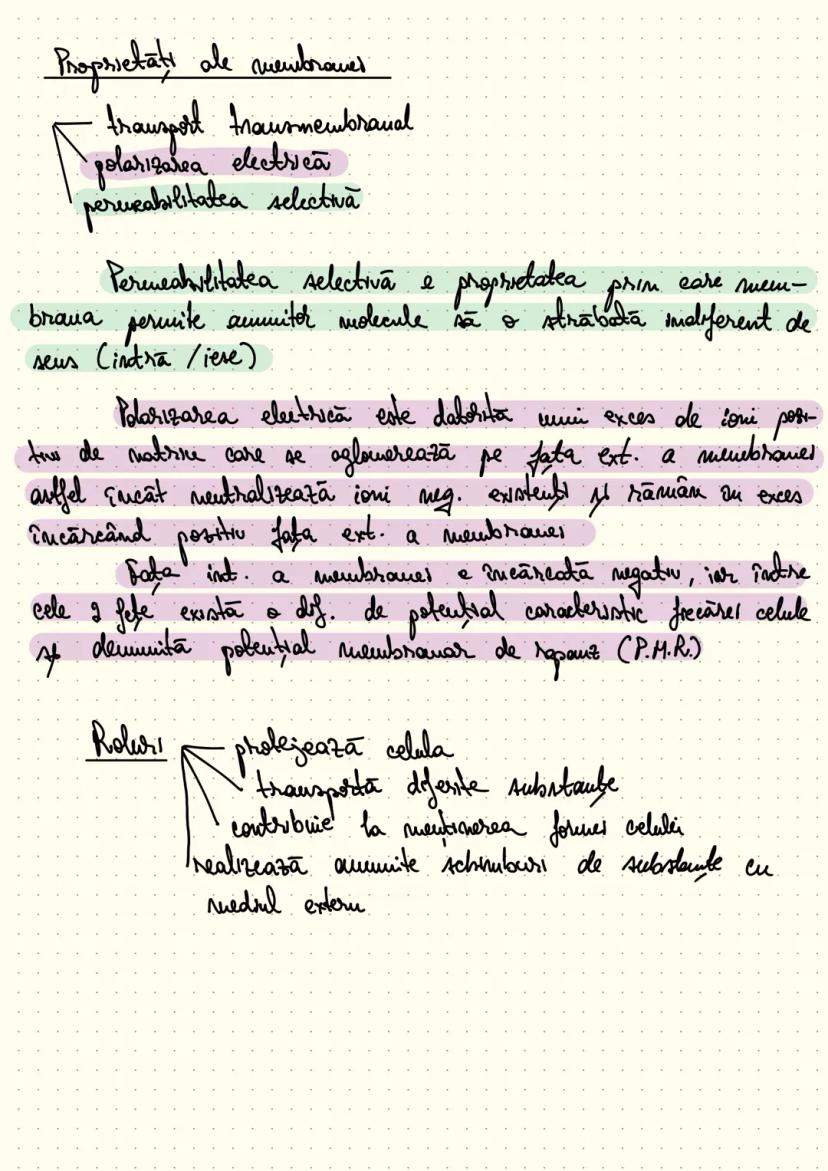 Proprietăți ale membranei
transport transmembranal
polarizarea electrică
permeabilitatea selectivă
Permeabilitatea selectivă e proprietatea prin care mem-
brana permite anumitor molecule să o străbată indiferent de
sens (intră / iese)
Polarizarea electrică este datorită unui exces de ioni pozi-
tivi de natriu care se aglomerează pe fața ext. a membranei
astfel încât neutralizează ioni neg. existenți și rămân în exces
încărcând pozitiv fața ext. a membranei
Fața int. a membranei e încărcată negativ, iar între
cele 2 fețe există o dif. de potențial caracteristic fiecărei celule
și denumită potențial membranar de repaus (P.M.R.)
Roluri
protejează celula
transportă diferite substanțe
contribuie la menținerea formei celulei
realizează anumite schimburi de substanțe cu
mediul extern